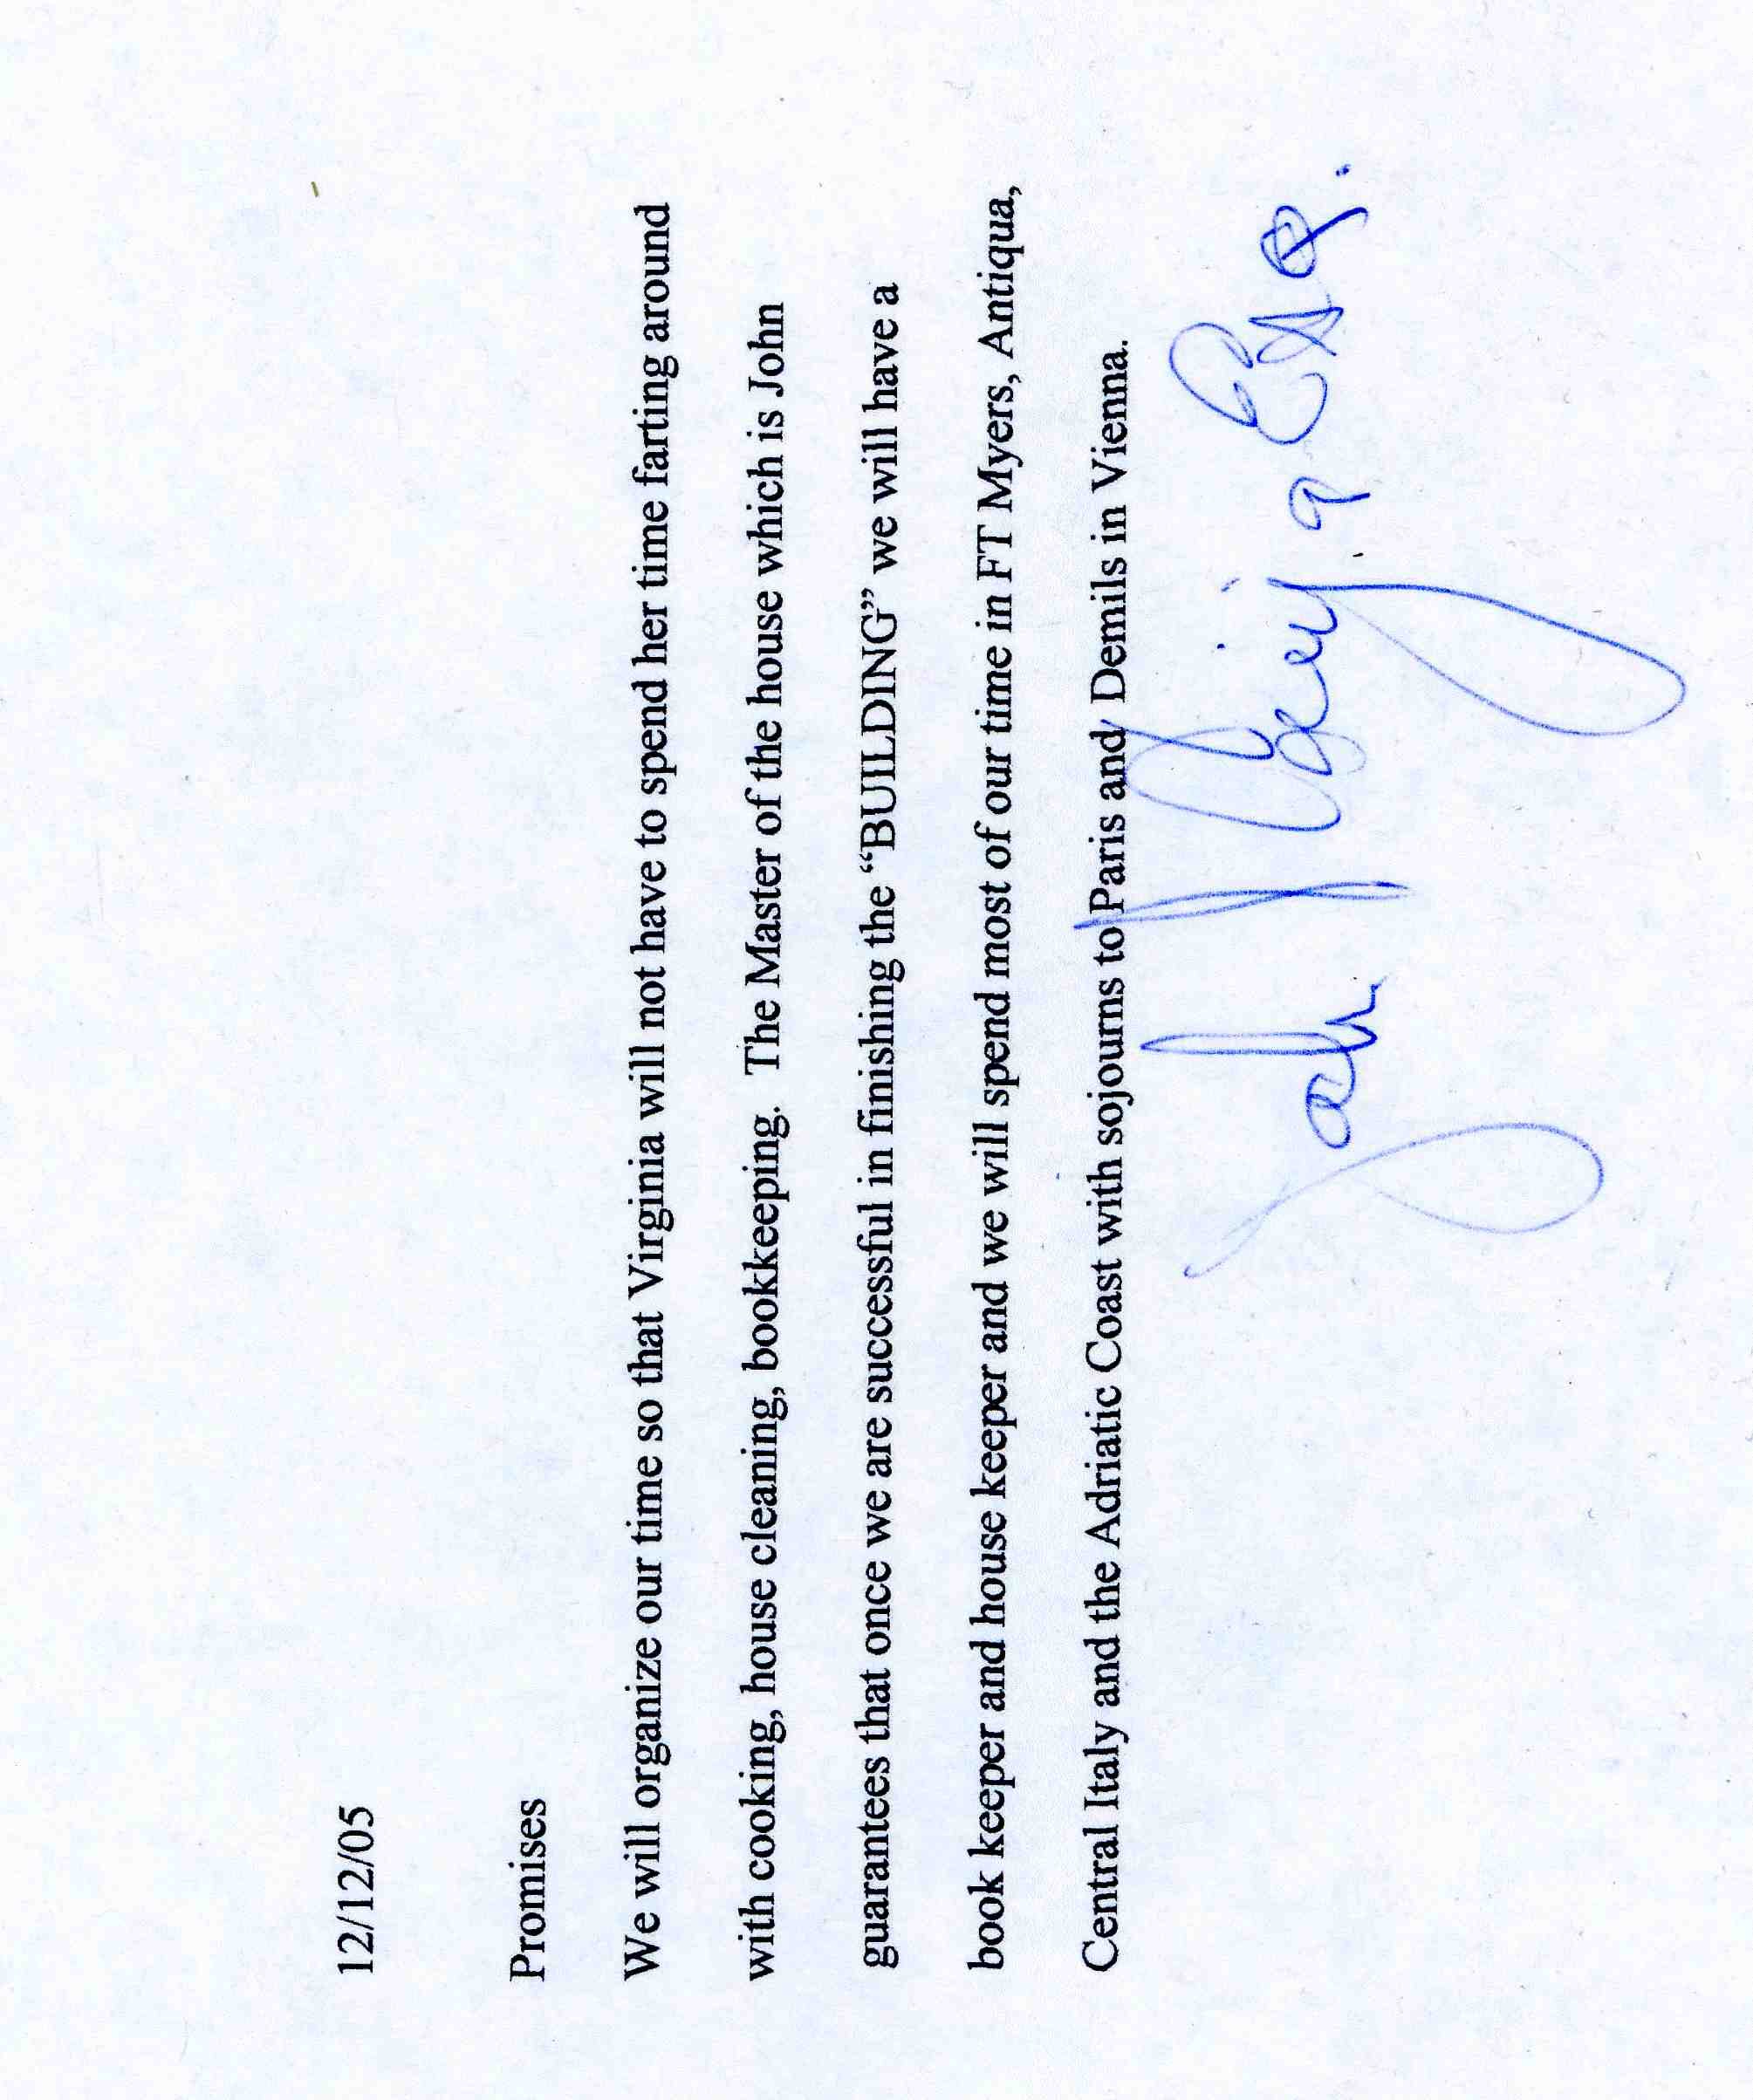 12/12/05
Promises
We will organize our time so that Virginia will not have to spend her time farting around
with cooking, house cleaning, bookkeeping. The Master of the house which is John
guarantees that once we are successful in finishing the “BUILDING” we will have a
book keeper and house keeper and we will spend most of our time in FT Myers, Antiqua,
Central Italy and the Adriatic Coast with sojourns to Paris and Demils in Vienna.
John Esq.